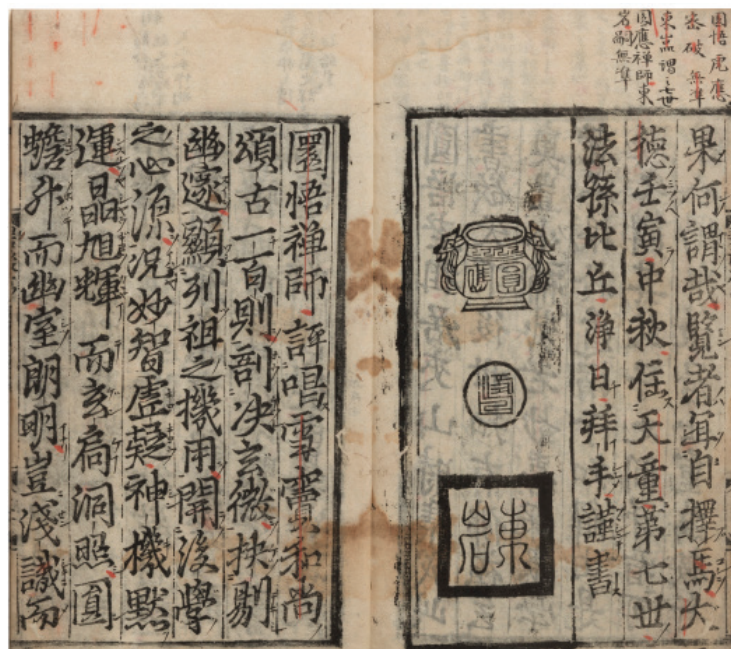 圜悟 虎應
無準
東嵓謂之七世
圓應禅師東
岩嗣無準
果何謂哉覽者宜自擇焉大
德壬寅中秋住天童第七世
法孫比丘淨日拜手謹書
圓應
東岩
圜悟禅師評唱雪竇和尚
頌古一百則剖决玄微抉剔
幽邃顯列祖之機用開後學
之心源况妙智虛凝神機默
運晶旭輝而玄扃洞照圓
蟾升而幽室朗明豈淺識而